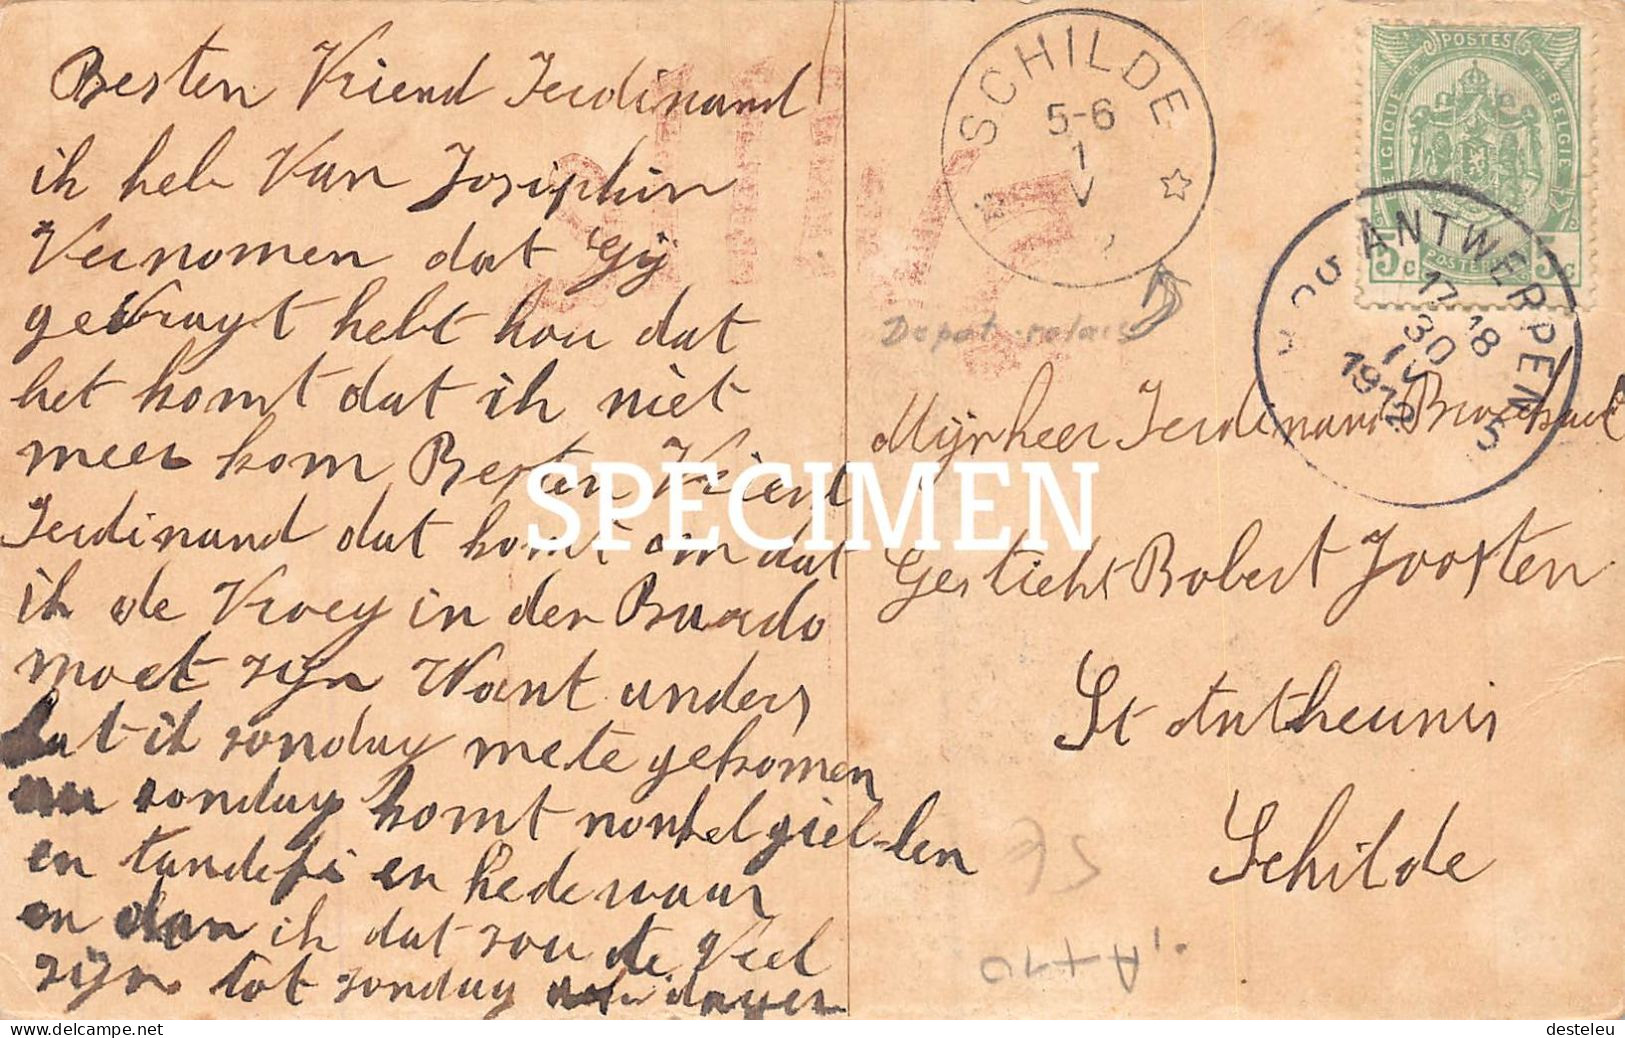 Besten Vriend Ferdinand
ik heb Van Josiphin
Vernomen dat Gij
gevraagt hebt hou dat
het komt dat ik niet
meer kom Besten Vriend
Ferdinand dat komt om dat
ik de Vroey in den
moet zijn Want anders
zat ik zonday mete gekomen
zonday komt nonkel giel-len
en tandefi en hede waar
en dan ik dat zou te Veel
zijn tot zonday
SCHILDE
5-6
1
V
POSTES
BELGIQUE
BELGIE
5c
5c
POSTERIJEN
ANTWERPEN
17-18
30
IV
1912
5
Depot-relais
Mijnheer Ferdinand
Gesticht Robert Joosten
St Antheunis
Schilde
75
A+10
SPECIMEN
desteleu